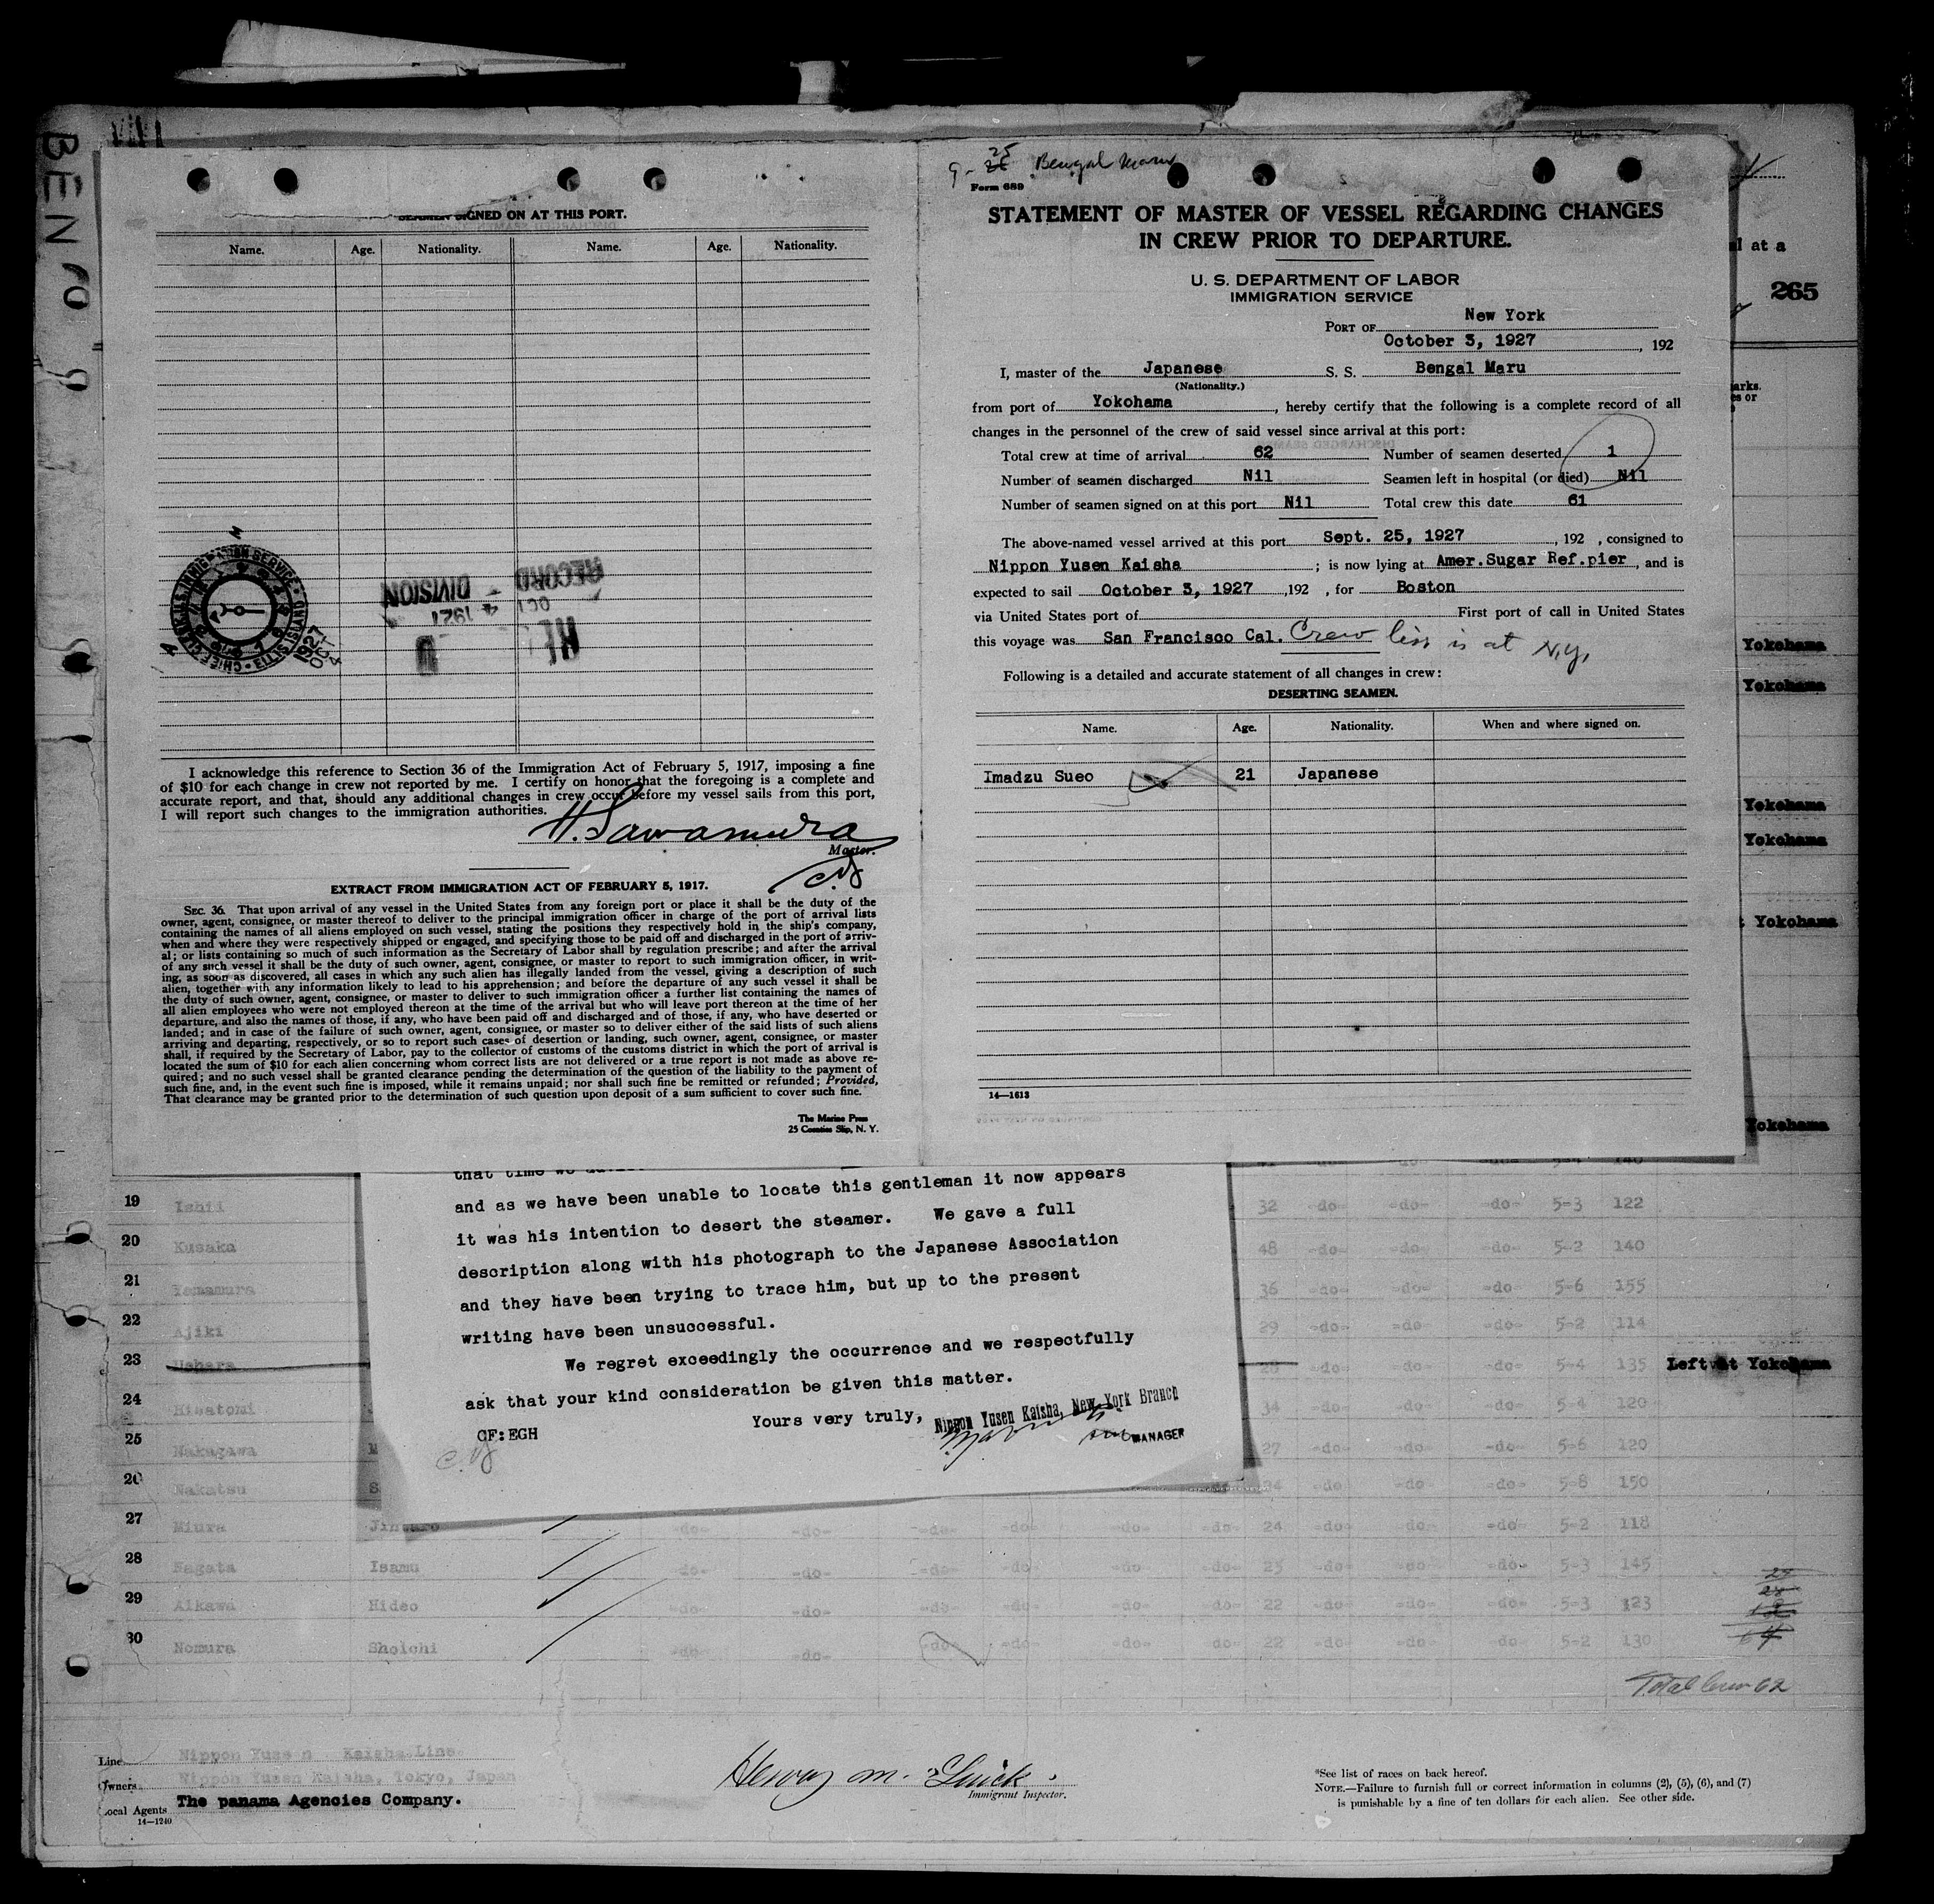 BEN
SEAMEN SIGNED ON AT THIS PORT.
Name. Age. Nationality. Name. Age. Nationality.
CHIEF CLERK U.S. IMMIGRATION SERVICE ELLIS ISLAND
1927 OCT 4
RECORD DIVISION
OCT 4 1927
I acknowledge this reference to Section 36 of the Immigration Act of February 5, 1917, imposing a fine
of $10 for each change in crew not reported by me. I certify on honor that the foregoing is a complete and
accurate report, and that, should any additional changes in crew occur before my vessel sails from this port,
I will report such changes to the immigration authorities.
H. Sawamura
Master.
EXTRACT FROM IMMIGRATION ACT OF FEBRUARY 5, 1917.
SEC. 36. That upon arrival of any vessel in the United States from any foreign port or place it shall be the duty of the
owner, agent, consignee, or master thereof to deliver to the principal immigration officer in charge of the port of arrival lists
containing the names of all aliens employed on such vessel, stating the positions they respectively hold in the ship's company,
when and where they were respectively shipped or engaged, and specifying those to be paid off and discharged in the port of arriv-
al; or lists containing so much of such information as the Secretary of Labor shall by regulation prescribe; and after the arrival
of any such vessel it shall be the duty of such owner, agent, consignee, or master to report to such immigration officer, in writ-
ing, as soon as discovered, all cases in which any such alien has illegally landed from the vessel, giving a description of such
alien, together with any information likely to lead to his apprehension; and before the departure of any such vessel it shall be
the duty of such owner, agent, consignee, or master to deliver to such immigration officer a further list containing the names of
all alien employees who were not employed thereon at the time of the arrival but who will leave port thereon at the time of her
departure, and also the names of those, if any, who have been paid off and discharged and of those, if any, who have deserted or
landed; and in case of the failure of such owner, agent, consignee, or master so to deliver either of the said lists of such aliens
arriving and departing, respectively, or so to report such cases of desertion or landing, such owner, agent, consignee, or master
shall, if required by the Secretary of Labor, pay to the collector of customs of the customs district in which the port of arrival is
located the sum of $10 for each alien concerning whom correct lists are not delivered or a true report is not made as above re-
quired; and no such vessel shall be granted clearance pending the determination of the question of the liability to the payment of
such fine, and, in the event such fine is imposed, while it remains unpaid; nor shall such fine be remitted or refunded; Provided,
That clearance may be granted prior to the determination of such question upon deposit of a sum sufficient to cover such fine.
The Marine Press
25 Coenties Slip, N. Y.
9- 25 Bengal Maru
Form 689
STATEMENT OF MASTER OF VESSEL REGARDING CHANGES
IN CREW PRIOR TO DEPARTURE.
U. S. DEPARTMENT OF LABOR
IMMIGRATION SERVICE
PORT OF New York
October 3, 1927, 192
I, master of the Japanese S. S. Bengal Maru
(Nationality.)
from port of Yokohama, hereby certify that the following is a complete record of all
changes in the personnel of the crew of said vessel since arrival at this port:
Total crew at time of arrival 62 Number of seamen deserted 1
Number of seamen discharged Nil Seamen left in hospital (or died) Nil
Number of seamen signed on at this port Nil Total crew this date 61
The above-named vessel arrived at this port Sept. 25, 1927, 192 , consigned to
Nippon Yusen Kaisha ; is now lying at Amer.Sugar Ref.pier, and is
expected to sail October 3, 1927, 192 , for Boston
via United States port of First port of call in United States
this voyage was San Francisco Cal. Crew list is at N.Y.
Following is a detailed and accurate statement of all changes in crew:
DESERTING SEAMEN.
Name. Age. Nationality. When and where signed on.
Imadzu Sueo 21 Japanese
14—1613
l at a
265
arks.
es or
Yokohama
Yokohama
Yokohama
Yokohama
t Yokohama
Yokohama
and as we have been unable to locate this gentleman it now appears
it was his intention to desert the steamer. We gave a full
description along with his photograph to the Japanese Association
and they have been trying to trace him, but up to the present
writing have been unsuccessful.
We regret exceedingly the occurrence and we respectfully
ask that your kind consideration be given this matter.
Yours very truly, Nippon Yusen Kaisha, New York Branch
MANAGER
CF:EGH
19 Ishii 32 -do- -do- -do- 5-3 122
20 Kusaka 48 -do- -do- -do- 5-2 140
21 Yamamura 36 -do- -do- -do- 5-6 155
22 Ajiki 29 -do- -do -do- 5-2 114
23 Uehara -do- -do- -do- 5-4 135 Left at Yokohama
24 Hisatomi 34 -do- -do- -do- 5-4 120
25 Nakagawa 27 -do- -do- -do- 5-6 120
26 Nakatsu S 24 -do- -do- -do- 5-8 150
27 Miura Jintaro -do- -do- -do- -do- -do- -do- 24 -do- -do- -do- 5-2 118
28 Nagata Isamu -do- -do- -do- -do- -do- -do- 23 -do- -do- -do- 5-3 145
29 Aikawa Hideo -do- -do- -do- -do- -do- -do- 22 -do- -do- -do- 5-3 123
30 Nomura Shoichi -do- -do- -do- -do- -do- do- 22 -do- -do- -do 5-2 130
Total Crew 62
Line Nippon Yusen Kaisha Line
Owners Nippon Yusen Kaisha, Tokyo, Japan
Local Agents The panama Agencies Company.
14—1240
Immigrant Inspector.
*See list of races on back hereof.
NOTE.—Failure to furnish full or correct information in columns (2), (5), (6), and (7)
is punishable by a fine of ten dollars for each alien. See other side.